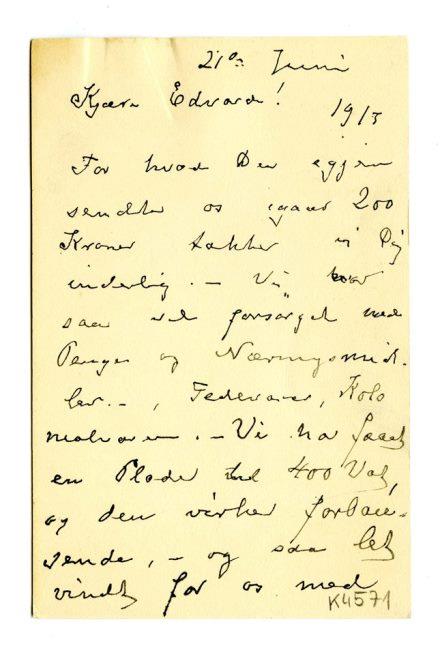 21de Juni
Kjære Edvard!
1913
For hvad Du igjen
sendte os igaar 200
Kroner takker vi Dig
inderlig. – Vi
saa vel forsørget med
Penger og Næringsmid-
ler. –, Fedevarer, Kolo
nialvarer. – Vi ha faaet
en Plade til 400 Vat,
og den virker forbau-
sende, – og saa let
vindt for os med
K4571